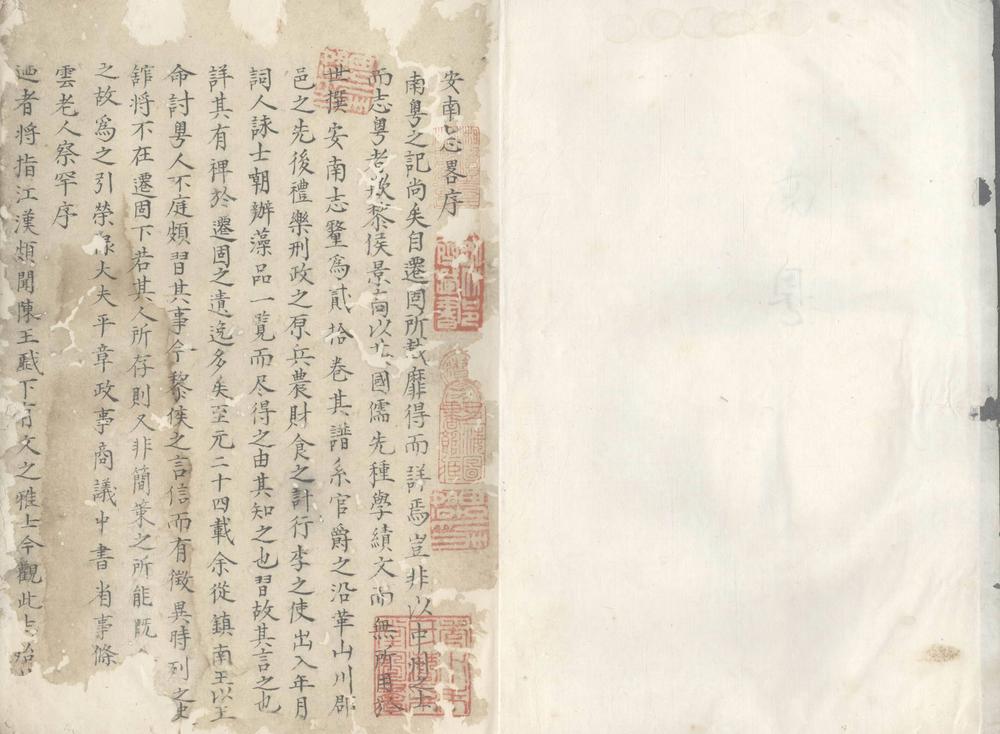 安南志畧序
南粤之記尚矣自遷固所載靡得而詳焉豈非以中州之士
而志粤者歟黎侯景高以其國儒先種學績文而無所用於
世撰安南志釐爲貳拾卷其譜系官爵之沿革山川郡
邑之先後禮樂刑政之原兵農財食之計行李之使出入年月
詞人詠士朝辦藻品一覧而尽得之由其知之也習故其言之也
詳其有裨於遷固之遺逸多矣至元二十四載余從鎮南王以王
命討粤人不庭頗習其事今黎侯之言信而有徵異時列之史
舘將不在遷固下若其人所存則又非簡策之所能既
之故爲之引榮禄大夫平章政事商議中書省事條
雲老人察罕序
廼者將指江漢頗聞陳王戲下有文之雅士今觀此